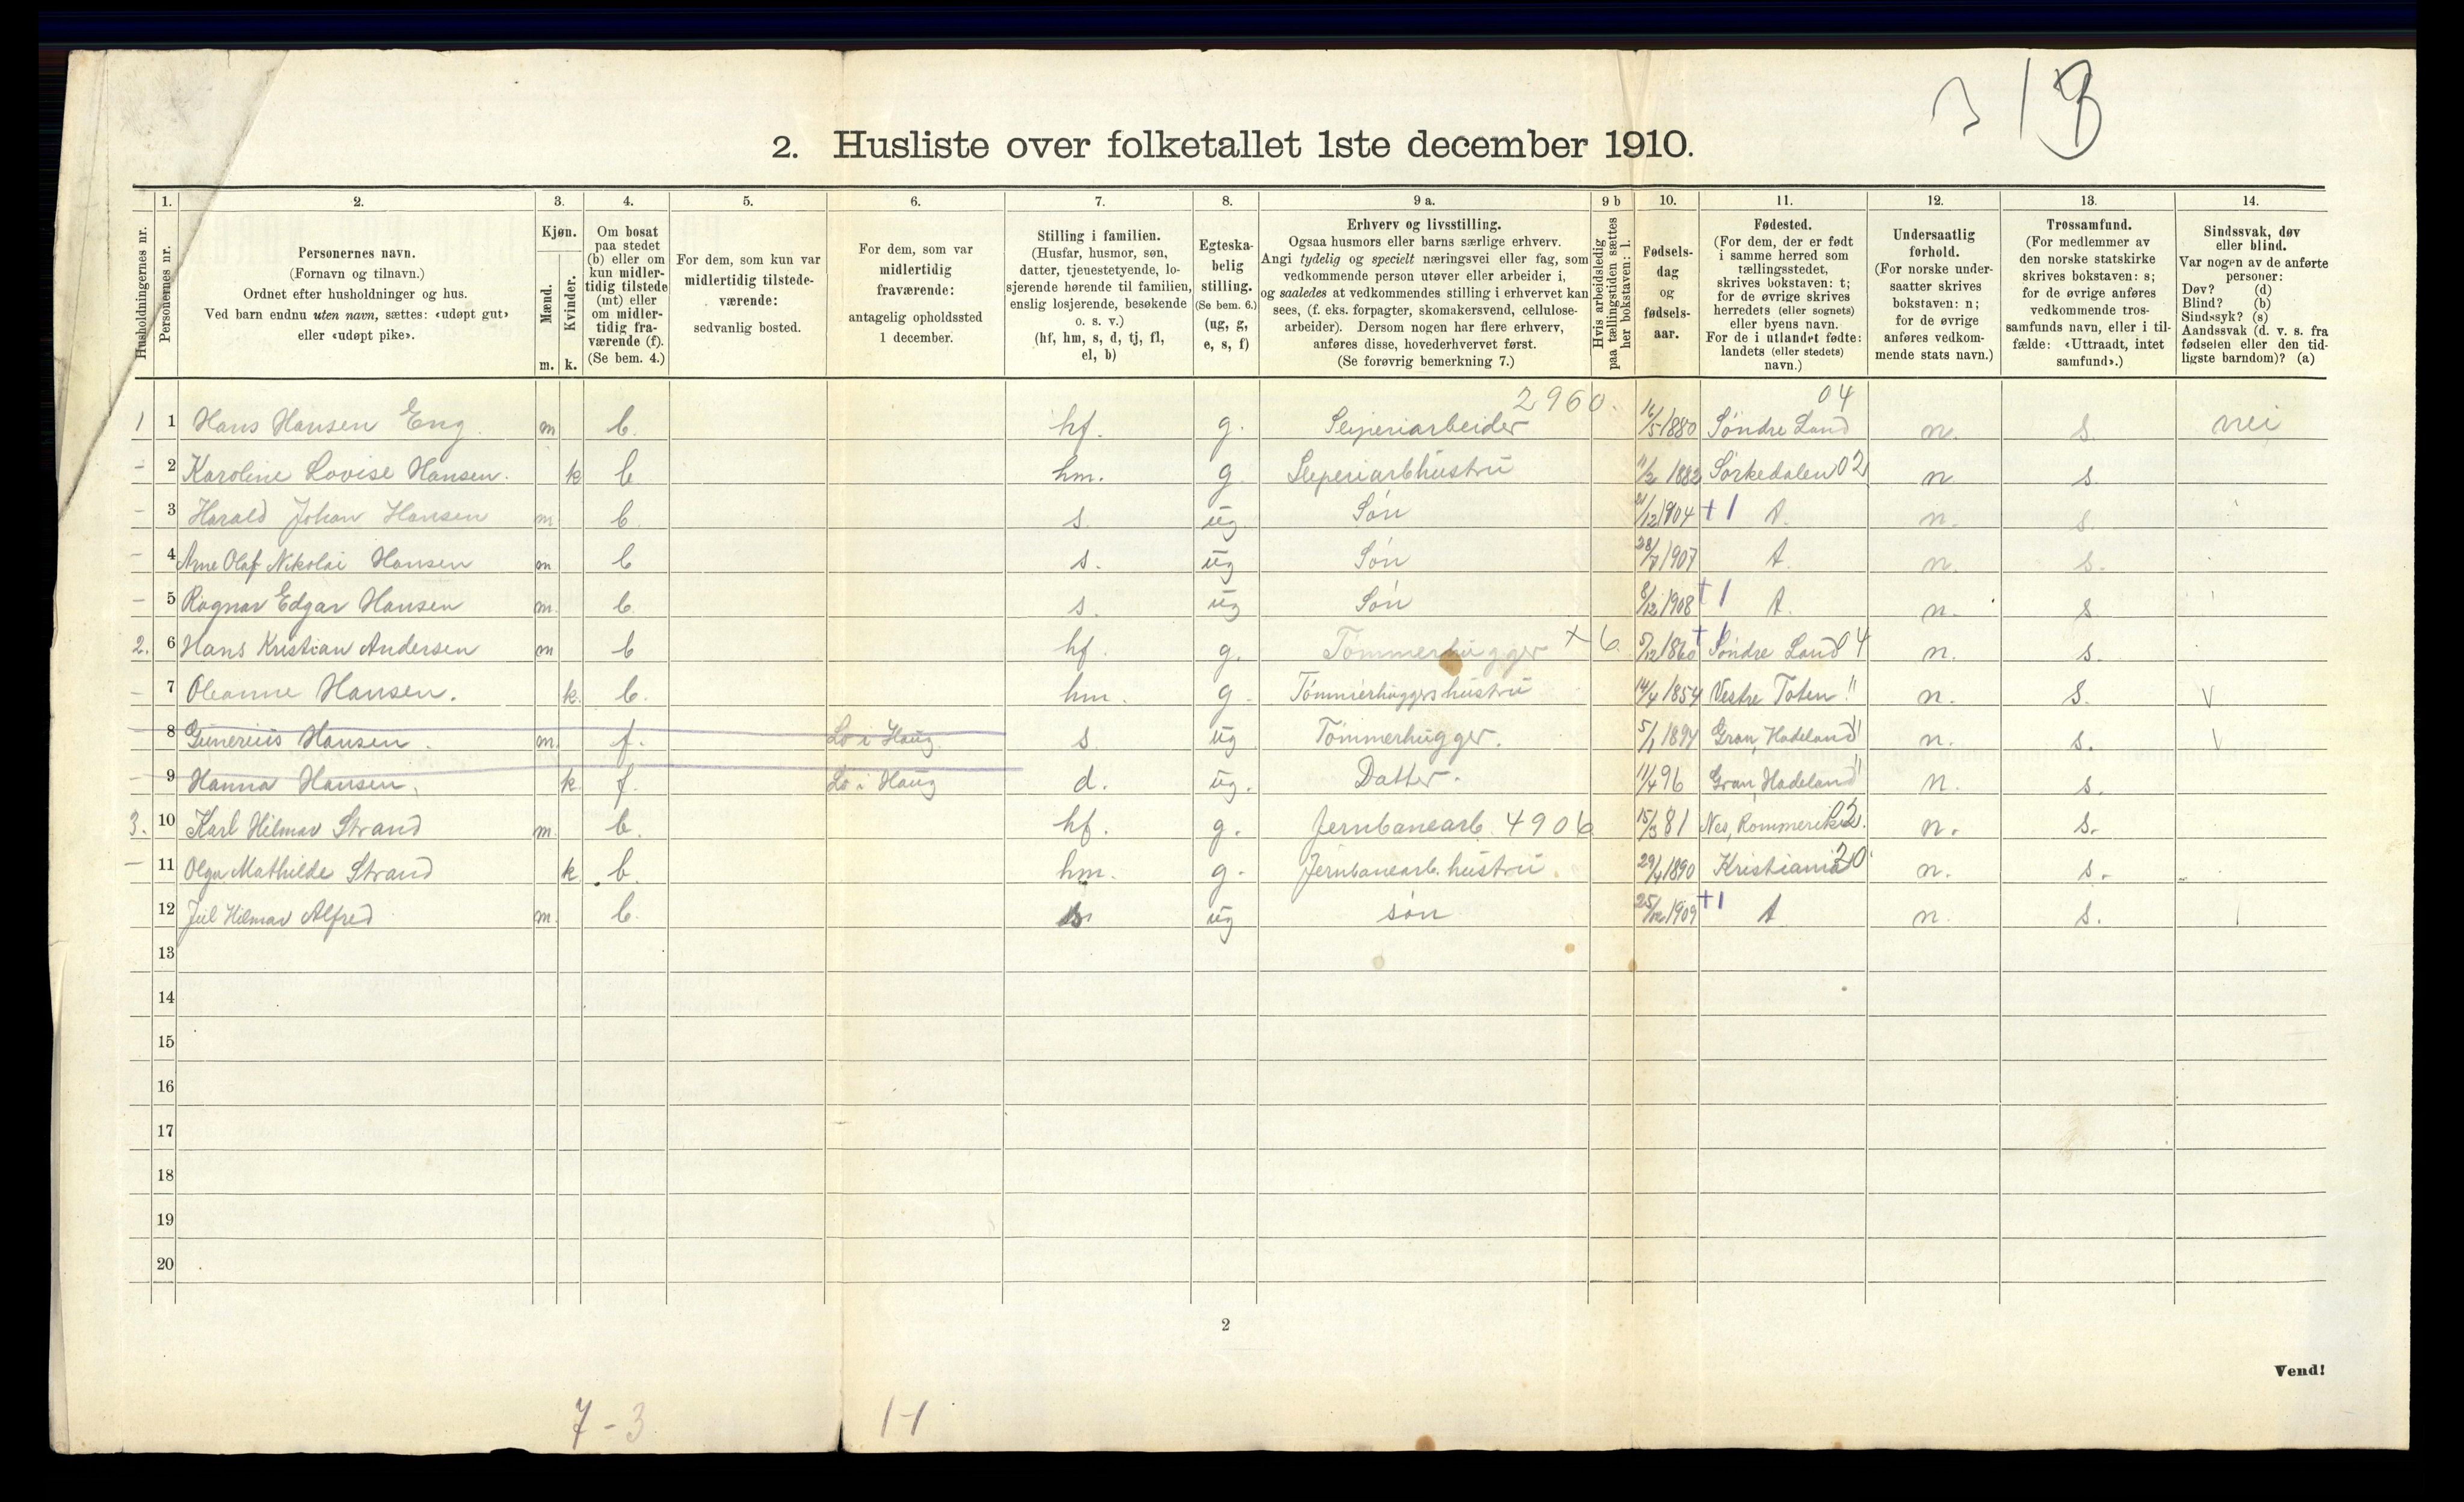 2. Husliste over folketallet 1ste december 1910.
Husholdningernes nr.
1. Personernes nr.
2. Personernes navn.
(Fornavn og tilnavn.)
Ordnet efter husholdninger og hus.
Ved barn endnu uten navn, sættes: «udøpt gut»
eller «udøpt pike».
3. Kjøn.
Mænd. m.
Kvinder. k.
4. Om bosat
paa stedet
(b) eller om
kun midler-
tidig tilstede
(mt) eller
om midler-
tidig fra-
værende (f).
(Se bem. 4.)
5. For dem, som kun var
midlertidig tilstede-
værende:
sedvanlig bosted.
6. For dem, som var
midlertidig
fraværende:
antagelig opholdssted
1 december.
7. Stilling i familien.
(Husfar, husmor, søn,
datter, tjenestetyende, lo-
sjerende hørende til familien,
enslig losjerende, besøkende
o. s. v.)
(hf, hm, s, d, tj, fl,
el, b)
8. Egteska-
belig
stilling.
(Se bem. 6.)
(ug, g,
e, s, f)
9 a. Erhverv og livsstilling.
Ogsaa husmors eller barns særlige erhverv.
Angi tydelig og specielt næringsvei eller fag, som
vedkommende person utøver eller arbeider i,
og saaledes at vedkommendes stilling i erhvervet kan
sees, (f. eks. forpagter, skomakersvend, cellulose-
arbeider). Dersom nogen har flere erhverv,
anføres disse, hovederhvervet først.
(Se forøvrig bemerkning 7.)
9 b Hvis arbeidsledig
paa tællingstiden sættes
her bokstaven: l.
10. Fødsels-
dag
og
fødsels-
aar.
11. Fødested.
(For dem, der er født
i samme herred som
tællingsstedet,
skrives bokstaven: t;
for de øvrige skrives
herredets (eller sognets)
eller byens navn.
For de i utlandet fødte:
landets (eller stedets)
navn.)
12. Undersaatlig
forhold.
(For norske under-
saatter skrives
bokstaven: n;
for de øvrige
anføres vedkom-
mende stats navn.)
13. Trossamfund.
(For medlemmer av
den norske statskirke
skrives bokstaven: s;
for de øvrige anføres
vedkommende tros-
samfunds navn, eller i til-
fælde: «Uttraadt, intet
samfund».)
14. Sindssvak, døv
eller blind.
Var nogen av de anførte
personer:
Døv? (d)
Blind? (b)
Sindssyk? (s)
Aandssvak (d. v. s. fra
fødselen eller den tid-
ligste barndom)? (a)
2960. 04
1 1 Hans Hansen Eng. m b. hf. g. Sliperiarbeider 16/5 1880 Søndre Land n. s. nei
- 2 Karoline Lovise Hansen. k b hm. g. Sliperiarbhustru 11/2 1882 Sørkedalen 02 n s
- 3 Harald Johan Hansen m b. s. ug. Søn 21/12 1904 +1 t. n. s.
- 4 Arne Olaf Nikolai Hansen m b s. ug Søn 28/7 1907 t. n. s.
- 5 Ragnar Edgar Hansen m. b s. ug Søn 8/12 1908 +1 t. n. s
2. 6 Hans Kristian Andersen m b hf. g. Tømmerhugger × 6 5/12 1860 +1 Søndre Land 04 n. s.
- 7 Oleanne Hansen. k. b. hm. g. Tømmerhuggers hustru 14/4 1854 Vestre Toten " n. s.
- 8 Gunerius Hansen. m. f. Lo i Haug. s ug Tømmerhugger. 5/1 1894 Gran, Hadeland " n. s.
- 9 Hanna Hansen. k f. Lo i Haug d. ug. Datter. 11/4 96 Gran, Hadeland " n. s.
3. 10 Karl Hilmar Strand m. b. hf. g. Jernbanearb. 4906 15/3 81 Nes, Rommerike 02. n. s.
- 11 Olga Mathilde Strand k b. hm. g. Jernbanearb. hustru. 29/4 1890 Kristiania 20 n. s.
12 Juel Hilmar Alfred m. b. s ug søn 25/12 1909 +1 t n. s.
13
14
15
16
17
18
19
20
2
Vend!
7-3 1-1